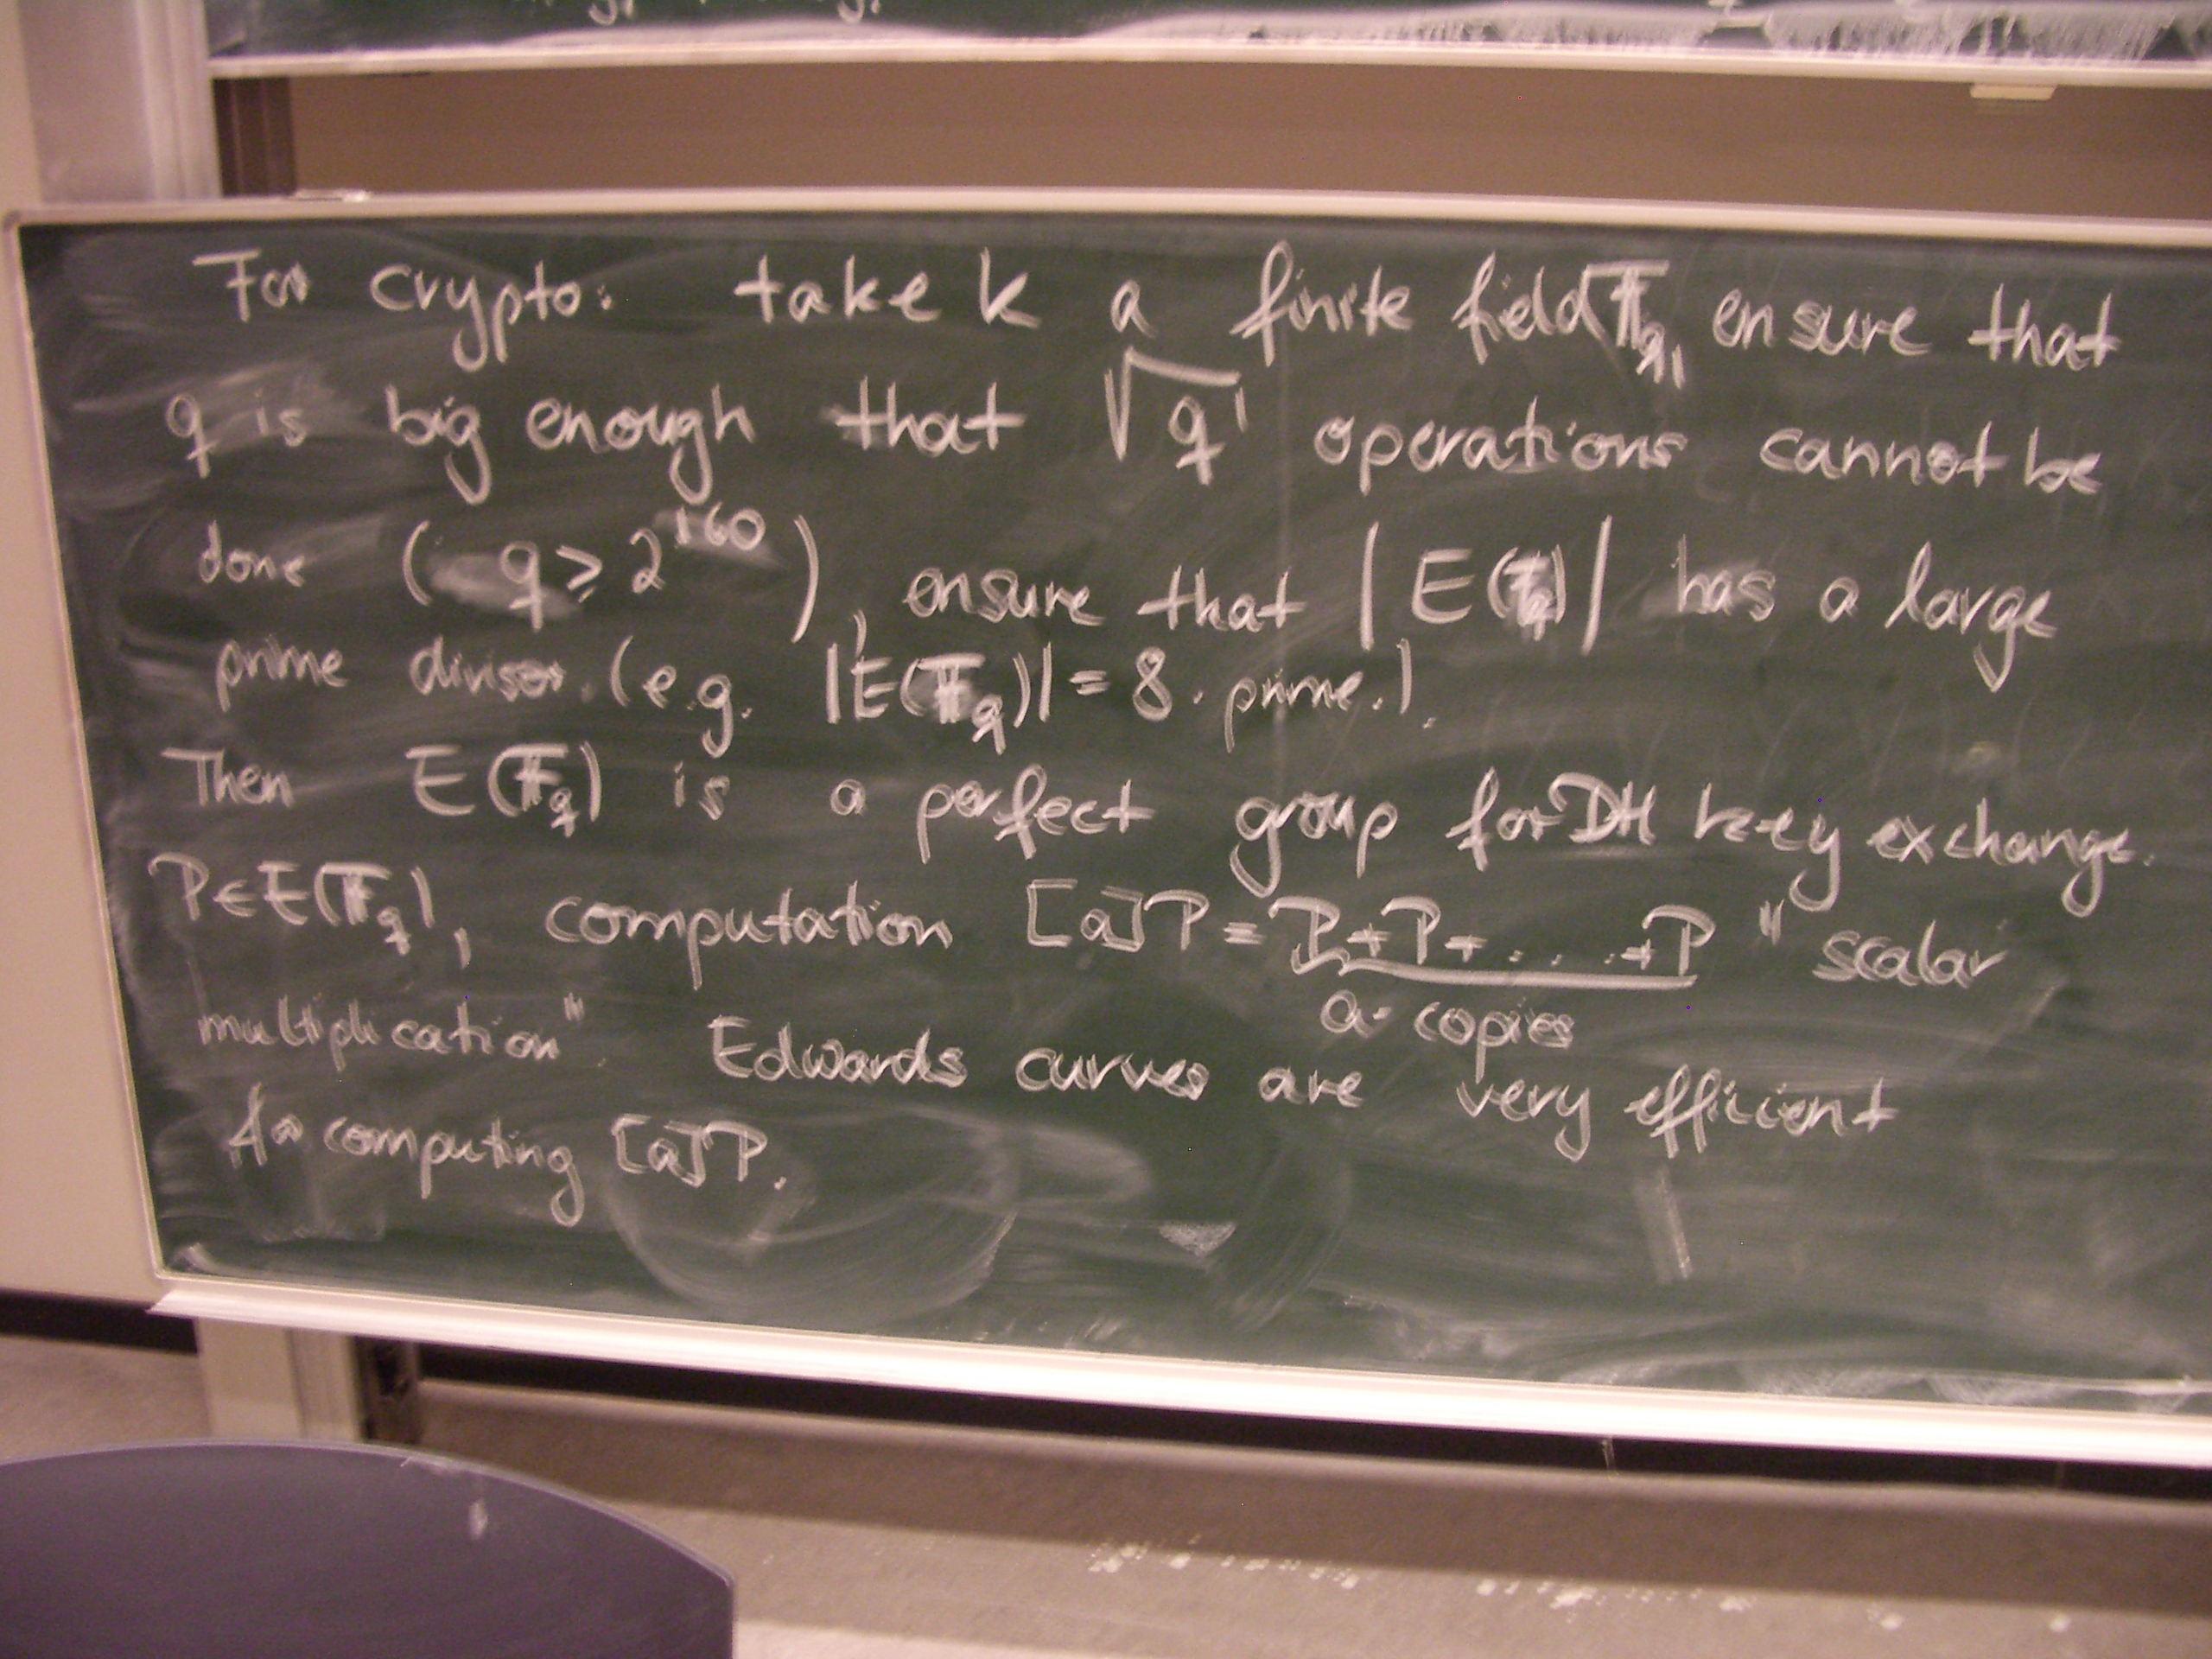 For crypto: take k a finite field 𝔽_q, ensure that
q is big enough that √q operations cannot be
done ( q ≥ 2^160 ), ensure that |E(𝔽_q)| has a large
prime divisor. (e.g. |E(𝔽_q)| = 8 · prime.).
Then E(𝔽_q) is a perfect group for DH key exchange.
P ∈ E(𝔽_q), computation [a]P = P+P+ ... +P " scalar
a copies
multiplication". Edwards curves are very efficient
for computing [a]P.